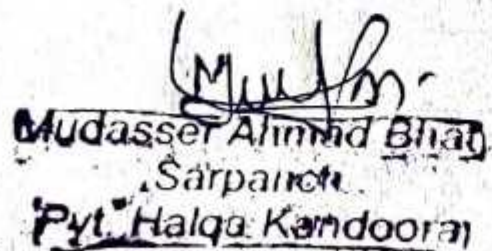 Mudasser Ahmad Bhat
Sarpanch
Pyt. Halqa Kandoora